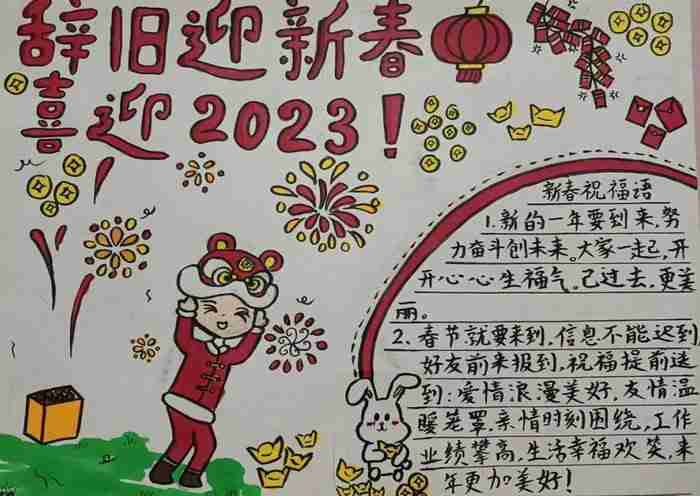 辞旧迎新春
喜迎2023!
新春祝福语
1.新的一年要到来,努
力奋斗创未来。大家一起,开
开心心生福气。已过去,更美
丽。
2、春节就要来到,信息不能迟到,
好友前来报到,祝福提前送
到:爱情浪漫美好,友情温
暖笼罩,亲情时刻围绕,工作
业绩攀高,生活幸福欢笑,来
年更加美好!